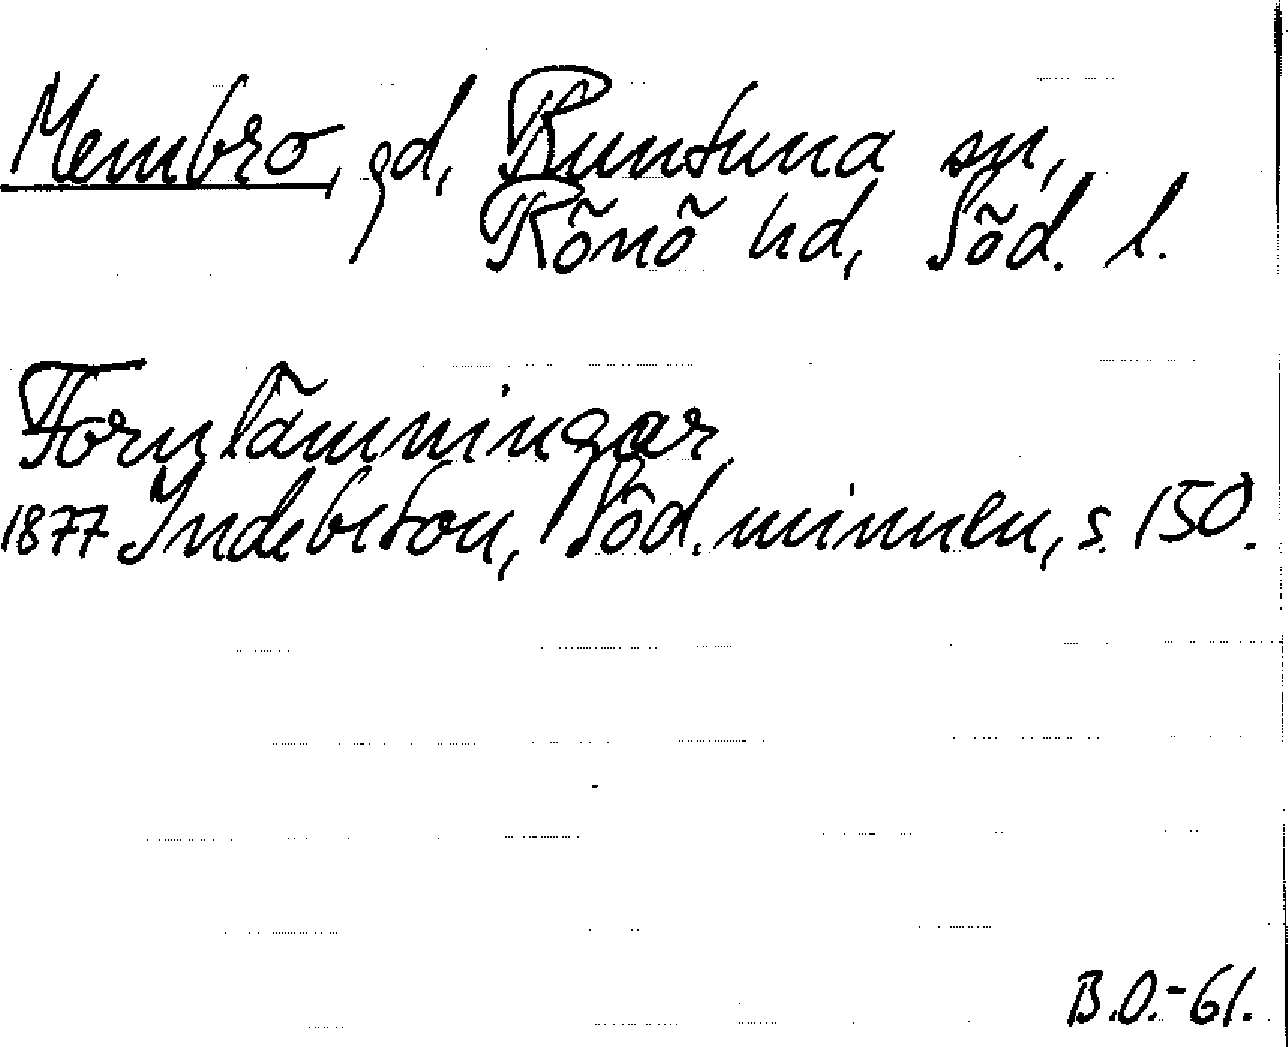 Membro, gd, Runtuna sn,
Rönö hd, Söd. l.
Fornlämningar
1877 Indebetou, Söd. minnen, s. 150.
B.O.-61.